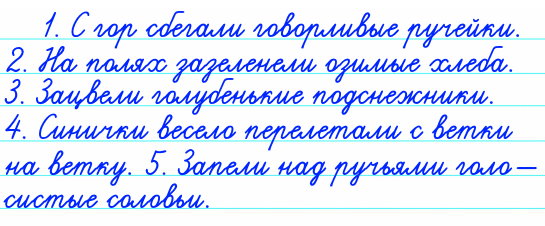 1. С гор сбегали говорливые ручейки.
2. На полях зазеленели озимые хлеба.
3. Зацвели голубенькие подснежники.
4. Синички весело перелетали с ветки
на ветку. 5. Запели над ручьями голо–
систые соловьи.